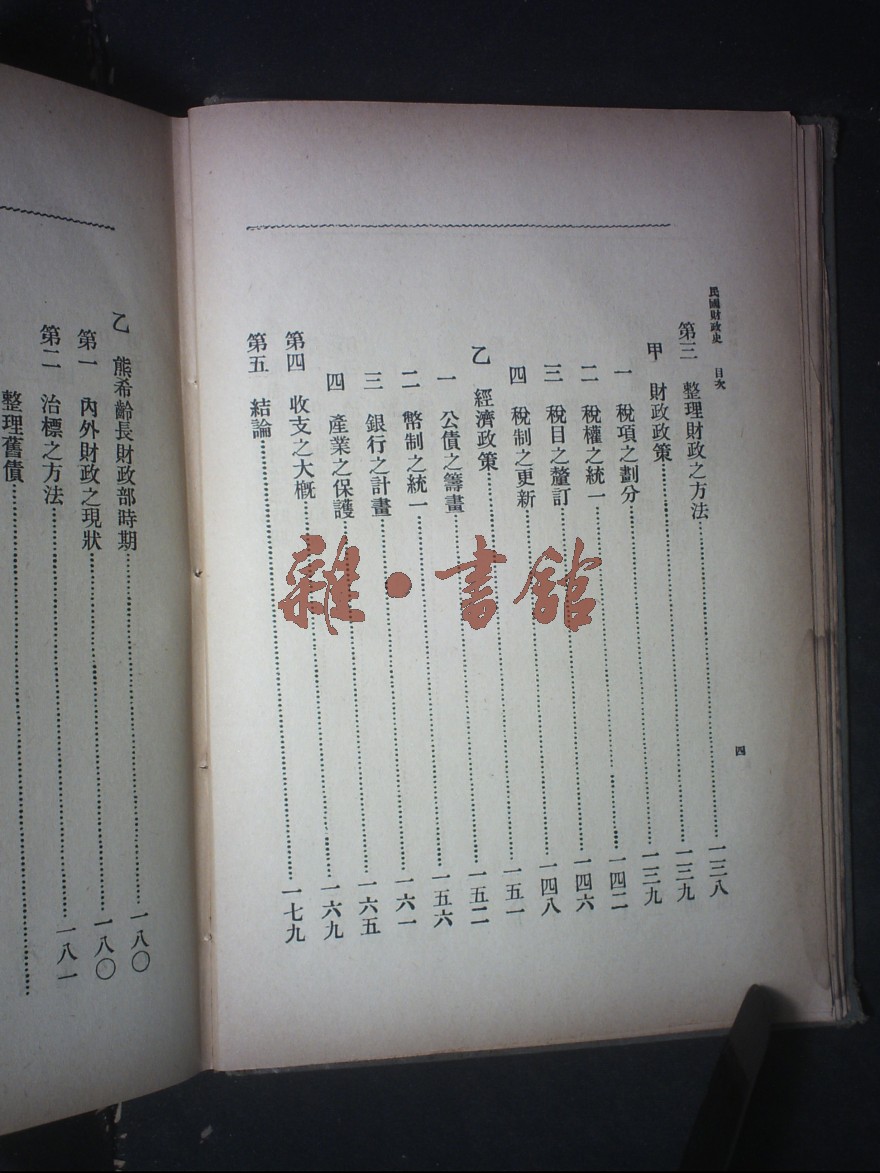 民國財政史 目次 四
第三 整理財政之方法……一三八
甲 財政政策……一三九
一 稅項之劃分……一三九
二 稅權之統一……一四二
三 稅目之釐訂……一四六
四 稅制之更新……一四八
乙 經濟政策……一五一
一 公債之籌畫……一五二
二 幣制之統一……一五六
三 銀行之計畫……一六一
四 產業之保護……一六五
第四 收支之大概……一六九
第五 結論……一七九
乙 熊希齡長財政部時期……一八〇
第一 內外財政之現狀……一八〇
第二 治標之方法……一八一
整理舊債……
雜·書館